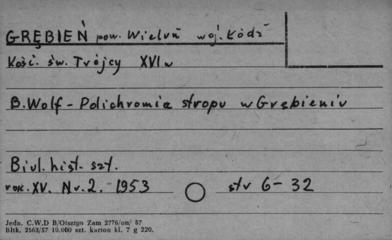 GRĘBIEŃ pow. Wieluń woj. Łódź
Kość. św. Trójcy XVI w
B. Wolf - Polichromia stropu w Grębieniu
Biul. hist. szt.
rok. XV. Nr. 2. - 1953 str 6 - 32
Jedn. C.W.D B/Olsztyn Zam 2776/on/ 57
Bltk. 2563/57 10.000 szt. karton kl. 7 g 220.